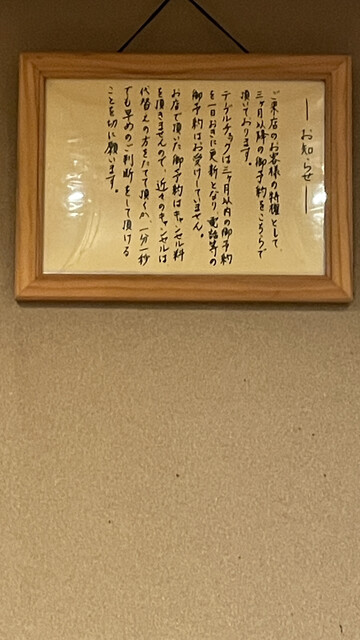 お知らせ
ご来店のお客様の特権として、
三ヶ月以降の御予約をこちらで
頂いております。
テーブルチェックは三ヶ月以内の御予約
を一日おきに更新となり、電話等の
御予約はお受けしていません。
お店で頂いた御予約はキャンセル料
を頂きませんので、近々のキャンセルは
代替えの方をたてて頂くか、一分一秒
でも早めのご判断をして頂ける
ことを切に願います。